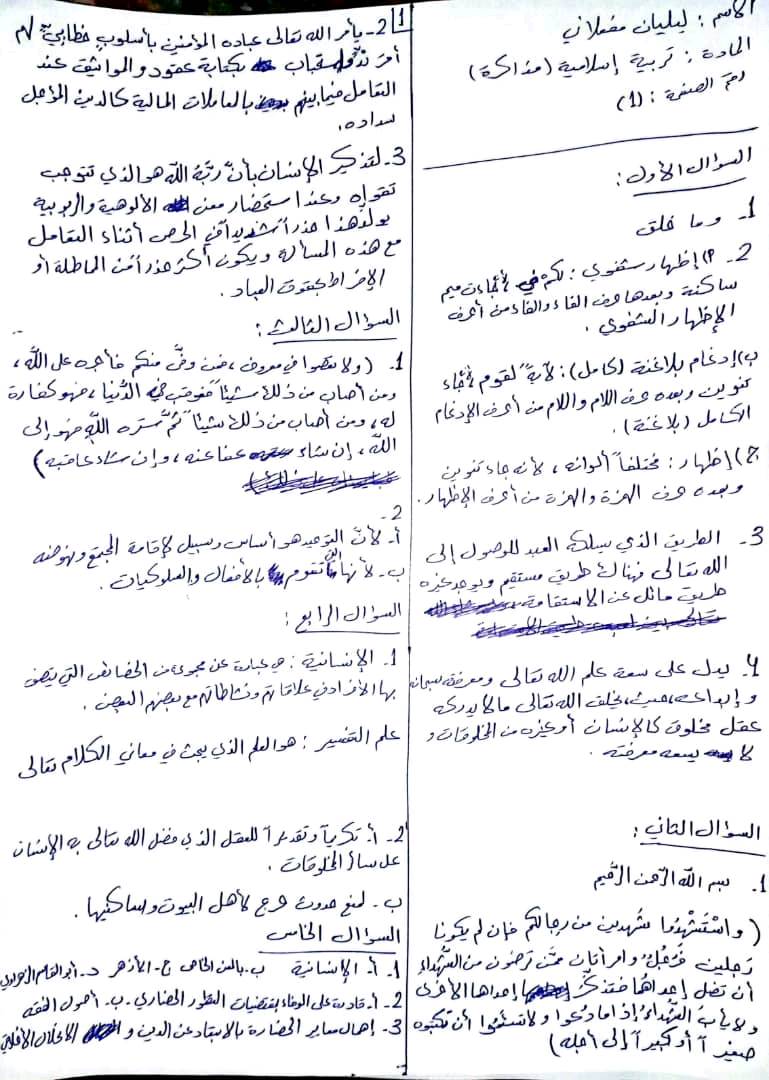 الاسم : ليليان مقملاني
المادة : تربية إسلامية (مذاكرة)
رقم الصفحة : (1)
السؤال الأول :
1- وما خلق
2- أ) إظهار شفوي : لكم في لأنه جاءت ميم
ساكنة وبعدها حرف الفاء والفاء من أحرف
الإظهار الشفوي .
ب) إدغام بلا غنة (كامل) : لآيةً لقوم لأنه جاء
تنوين وبعده حرف اللام واللام من أحرف الإدغام
الكامل (بلا غنة) .
ج) إظهار : مختلفاً ألوانه ، لأنه جاء تنوين
وبعده حرف الهمزة والهمزة من أحرف الإظهار .
3- الطريق الذي يسلكه العبد للوصول إلى
الله تعالى فهناك طريق مستقيم ويوجد غيره
طريق مائل عن الاستقامة
4- يدل على سعة علم الله تعالى ومعرفته سبحانه
وإبداعه ، حيث يخلق الله تعالى ما لا يدركه
عقل مخلوق كالإنسان أو غيره من المخلوقات و
لا يسعه معرفته .
السؤال الثاني :
1. بسم الله الرحمن الرحيم
( واسْتَشْهِدُوا شَهِيدين من رجالكم فإن لم يكونا
رَجلين فَرَجُلٌ وامرأتان ممَّن تَرضون من الشُّهداء
أن تضل إحداهُما فتذكِّر إحداهما الأخرى
ولا يأبَ الشُّهداءُ إذا ما دُعوا ولا تسئموا أن تكتبوه
صغيراً أو كبيراً إلى أجله )
1
2- يأمر الله تعالى عباده المؤمنين بأسلوب خطابي لهم
أمر ندب واستحباب بكتابة عقود والمواثيق عند
التعامل فيما بينهم بالعاملات المالية كالدين المؤجل
سداده .
3- لتذكير الإنسان بأنَّ ربَّهُ اللَّه هو الذي تتوجب
تقواه وعند استحضار معنى الألوهية والربوبية
يولد هذا حذراً شديداً في الحرص أثناء التعامل
مع هذه المسألة ويكون أكثر حذراً من المماطلة أو
الإفراط بحقوق العباد .
السؤال الثالث :
1. (ولا تعصوا في معروف ، فمن وفَّى منكم فأجره على اللَّه ،
ومن أصاب من ذلك شيئاً فعوقب في الدُّنيا ، فهو كفارة
له ، ومن أصاب من ذلك شيئاً ثمَّ ستره اللَّه فهو إلى
اللَّه ، إن شاء عفا عنه ، وإن شاء عاقبه)
2-
أ- لأنَّ التوحيد هو أساس وسبيل لإقامة المجتمع ونهوضه
ب- لأنها التي تقوم بالأفعال والسلوكيات .
السؤال الرابع :
1. الإنسانية : هي عبارة عن مجموعة من الخصائص التي يتصف
بها الأفراد في علاقاتهم ونشاطاتهم مع بعضهم البعض .
علم التفسير : هو العلم الذي يبحث في معاني الكلام تعالى
2- أ. تكريماً وتقديراً للعقل الذي فضل الله تعالى به الإنسان
على سائر المخلوقات .
ب- لمنع حدوث حرج لأهل البيوت وساكنيها .
السؤال الخامس
1. أ. الإنسانية ب. بالمعنى الخاص ج- الأزهر د- أبو القاسم الزهراوي
2- أ. قادرة على الوفاء بمقتضيات التطور الحضاري . ب. أصول الفقه
3- إهمال معايير الحضارة بالابتعاد عن الدين و الانحلال الأخلاقي